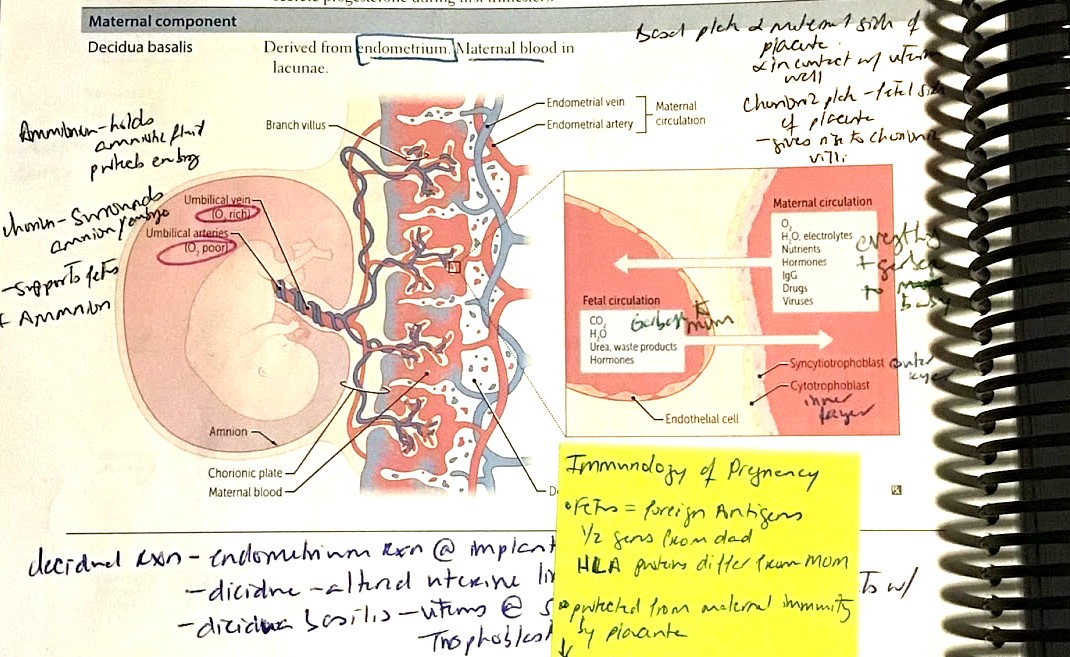 secrete progesterone during first trimester.
Maternal component
Decidua basalis
Derived from endometrium. Maternal blood in
lacunae.
Basal plate maternal side of
placenta
in contact w/ uterine
wall
plate - fetal side
of placenta
- gives rise to chorionic
villi
holds
amniotic fluid
embryo
Chorion - Surrounds
amnion/embryo
- supports fetus
+ Amnion
Branch villus
Endometrial vein
Endometrial artery
Maternal
circulation
Umbilical vein
(O₂ rich)
Umbilical arteries
(O₂ poor)
Amnion
Chorionic plate
Maternal blood
De
Maternal circulation
O₂
H₂O, electrolytes
Nutrients
Hormones
IgG
Drugs
Viruses
+
to
baby
Fetal circulation
CO₂
H₂O
Urea, waste products
Hormones
Garbage to
mum
Syncytiotrophoblast
outer
layer
Cytotrophoblast
inner
layer
Endothelial cell
Immunology of Pregnancy
• Fetus = foreign Antigens
1/2 from dad
HLA proteins differ from Mom
protected from maternal immunity
by placenta
↓
decidual rxn - endometrium rxn @ implant
- altered uterine li
- uterus @ S
Trophoblast
ts w/